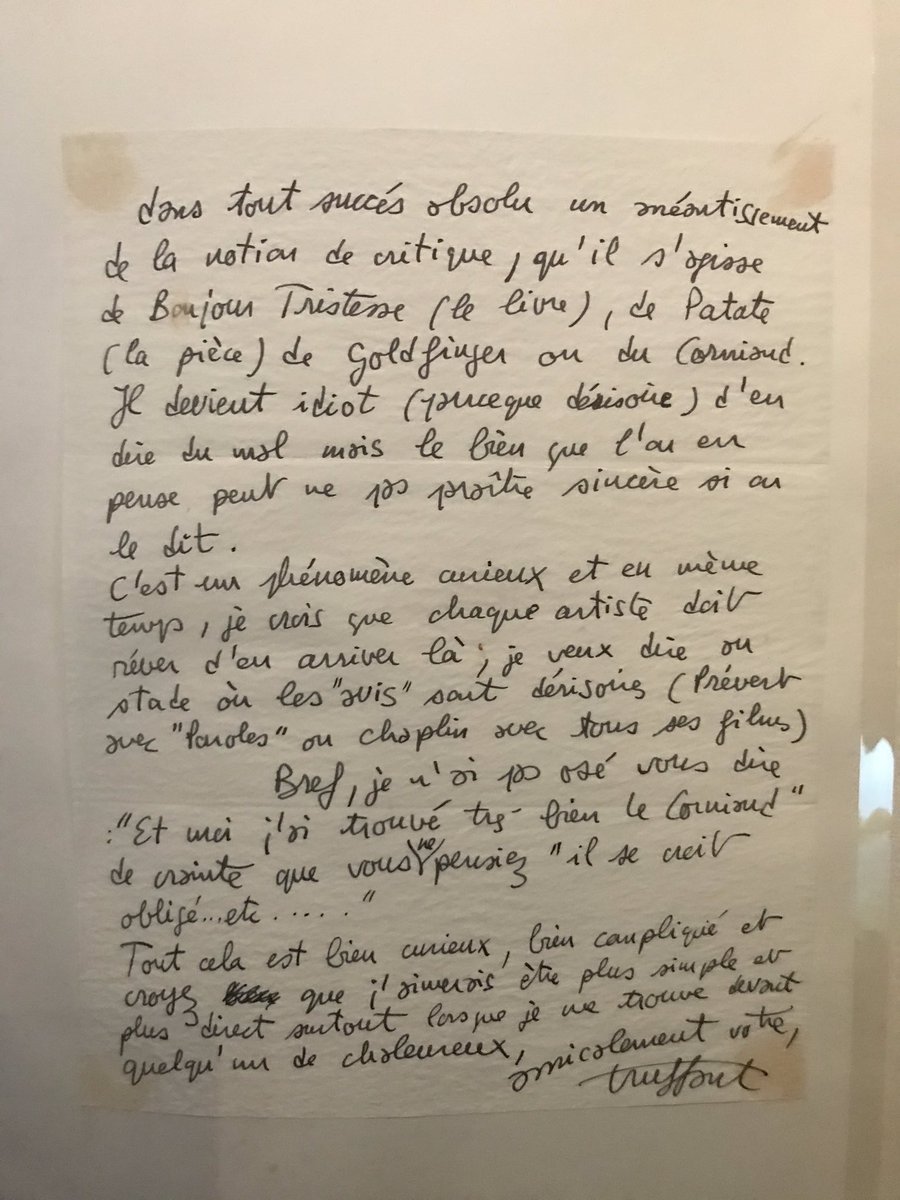 dans tout succés absolu un anéantissement
de la notion de critique, qu'il s'agisse
de Bonjour Tristesse (le livre), de Patate
(la pièce) de Goldfinger ou du Corniaud.
Il devient idiot (parceque dérisoire) d'en
dire du mal mais le bien que l'on en
pense peut ne pas praître sincère si on
le dit.
C'est un phénomène curieux et en même
temps, je crois que chaque artiste doit
rêver d'en arriver là ; je veux dire au
stade où les "avis" sont dérisoires (Prévert
avec "Paroles" ou chaplin avec tous ses films)
Bref, je n'ai pas osé vous dire
: "Et moi j'ai trouvé très bien le Corniaud"
de crainte que vous ne pensiez "il se croit
obligé...etc ....."
Tout cela est bien curieux, bien compliqué et
croyez que j'aimerais être plus simple et
plus direct surtout lorsque je me trouve devant
quelqu'un de chaleureux,
amicalement votre,
truffaut